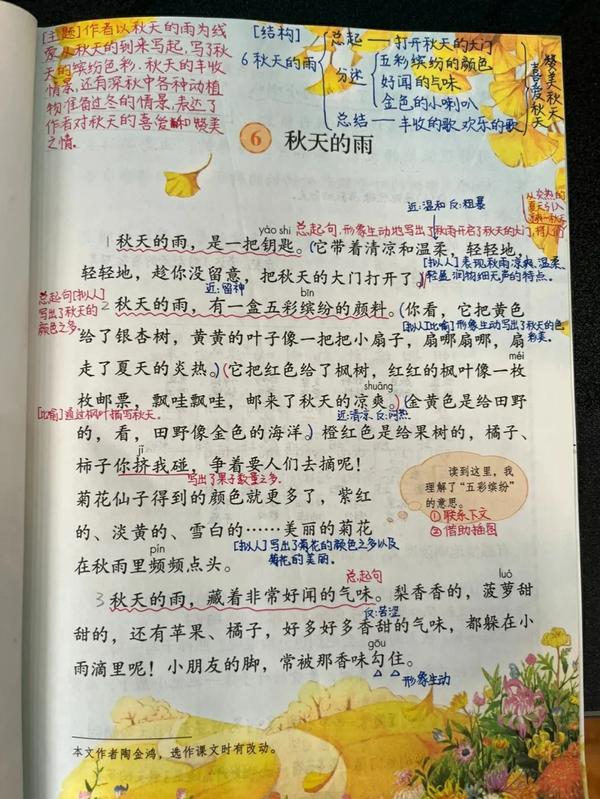 [主题]作者以秋天的雨为线
索从秋天的到来写起,写了秋
天的缤纷色彩.秋天的丰收
情景,还有深秋中各种动植
物准备过冬的情景.表达了
作者对秋天的喜爱和赞美
之情。
[结构]
6 秋天的雨
总起——打开秋天的大门
分述
五彩缤纷的颜色
好闻的气味
金色的小喇叭
总结——丰收的歌欢乐的歌
赞美秋天
喜爱秋天
6 秋天的雨
近:温和 反:粗暴
yào shi
总起句.形象生动地写出了秋雨开启了秋天的大门,
1秋天的雨,是一把钥匙。(它带着清凉和温柔,轻轻地,
[拟人]表现秋雨凉爽、温柔、
轻轻地,趁你没留意,把秋天的大门打开了。)
轻盈,润物细无声的特点。
近:留神
总起句[拟人]
写出了秋天的
颜色之多.
bīn
2 秋天的雨,有一盒五彩缤纷的颜料。(你看,它把黄色
[拟人][比喻]形象生动写出了秋天的色
彩美.
给了银杏树,黄黄的叶子像一把把小扇子,扇哪扇哪,扇
méi
走了夏天的炎热。)(它把红色给了枫树,红红的枫叶像一枚
shuāng
枚邮票,飘哇飘哇,邮来了秋天的凉爽。)(金黄色是给田野
[比喻]通过枫叶描写秋天。
近:清凉 反:闷热
的,看,田野像金色的海洋。)橙红色是给果树的,橘子、
jǐ
柿子你挤我碰,争着要人们去摘呢!
写出了果子数量之多.
菊花仙子得到的颜色就更多了,紫红
的、淡黄的、雪白的……美丽的菊花
pín
[拟人]写出了菊花的颜色之多以及
菊花的美丽。
在秋雨里频频点头。
读到这里,我
理解了“五彩缤纷”
的意思。
①联系下文
②借助插图
总起句
luó
3 秋天的雨,藏着非常好闻的气味。梨香香的,菠萝甜
反:苦涩
甜的,还有苹果、橘子,好多好多香甜的气味,都躲在小
gōu
雨滴里呢!小朋友的脚,常被那香味勾住。
形象生动
本文作者陶金鸿,选作课文时有改动。